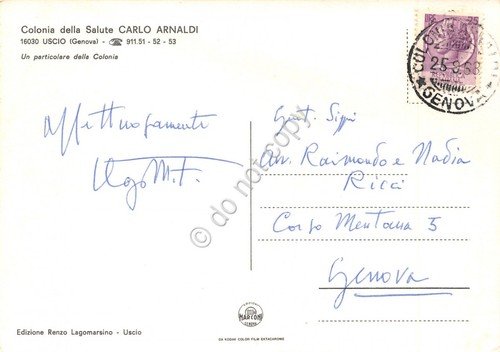 Colonia della Salute CARLO ARNALDI
16030 USCIO (Genova) - ☎ 911.51 - 52 - 53
Un particolare della Colonia
Affettuosamente
Ugo M.F.
25
COLONIA
GENOVA
Gent. Sigg.
Avv. Raimondo e Nadia
Ricci
Corso Mentana 5
Genova
© do not copy
MARCONI
GENOVA
DA KODAK COLOR FILM EKTACHROME
Edizione Renzo Lagomarsino - Uscio